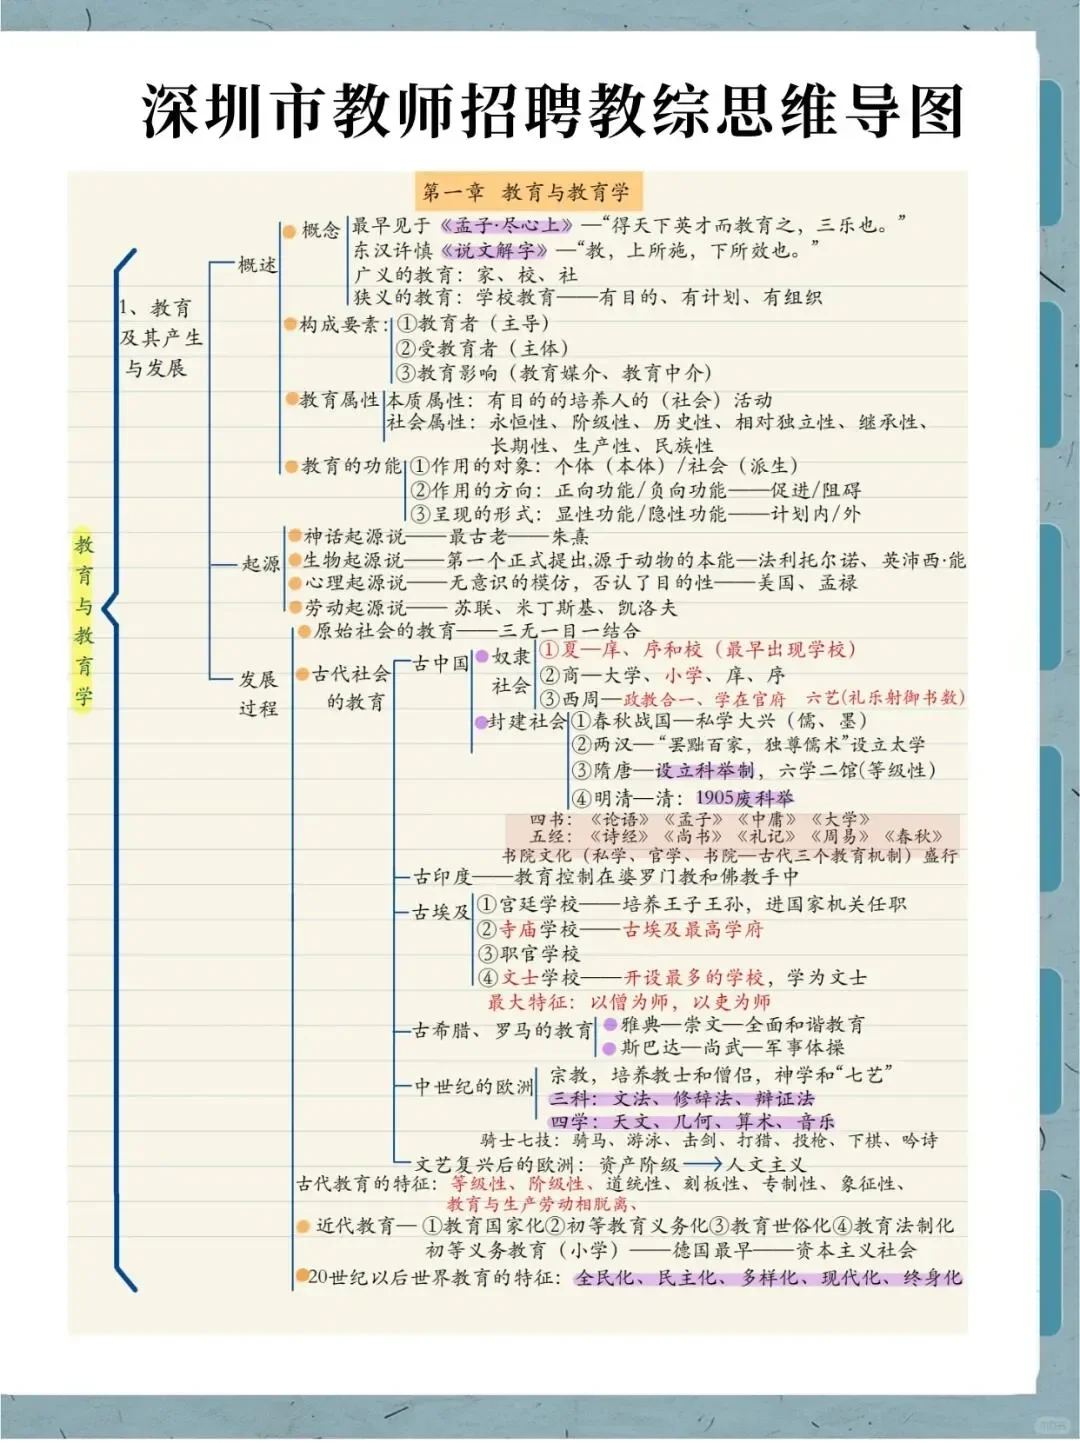 深圳市教师招聘教综思维导图
第一章 教育与教育学
教育与教育学
1、教育及其产生与发展
概述
概念
最早见于《孟子·尽心上》—“得天下英才而教育之，三乐也。”
东汉许慎《说文解字》—“教，上所施，下所效也。”
广义的教育：家、校、社
狭义的教育：学校教育——有目的、有计划、有组织
构成要素：①教育者（主导）
②受教育者（主体）
③教育影响（教育媒介、教育中介）
教育属性
本质属性：有目的的培养人的（社会）活动
社会属性：永恒性、阶级性、历史性、相对独立性、继承性、
长期性、生产性、民族性
教育的功能
①作用的对象：个体（本体）/社会（派生）
②作用的方向：正向功能/负向功能——促进/阻碍
③呈现的形式：显性功能/隐性功能——计划内/外
起源
神话起源说——最古老——朱熹
生物起源说——第一个正式提出,源于动物的本能—法利托尔诺、英沛西·能
心理起源说——无意识的模仿，否认了目的性——美国、孟禄
劳动起源说—— 苏联、米丁斯基、凯洛夫
发展过程
原始社会的教育——三无一目一结合
古代社会的教育
古中国
奴隶社会
①夏—庠、序和校（最早出现学校）
②商—大学、小学、庠、序
③西周—政教合一、学在官府 六艺(礼乐射御书数)
封建社会
①春秋战国—私学大兴（儒、墨）
②两汉—“罢黜百家，独尊儒术”设立太学
③隋唐—设立科举制，六学二馆(等级性)
④明清—清：1905废科举
四书：《论语》《孟子》《中庸》《大学》
五经：《诗经》《尚书》《礼记》《周易》《春秋》
书院文化（私学、官学、书院—古代三个教育机制）盛行
古印度——教育控制在婆罗门教和佛教手中
古埃及
①宫廷学校——培养王子王孙，进国家机关任职
②寺庙学校——古埃及最高学府
③职官学校
④文士学校——开设最多的学校，学为文士
最大特征：以僧为师，以吏为师
古希腊、罗马的教育
雅典—崇文—全面和谐教育
斯巴达—尚武—军事体操
中世纪的欧洲
宗教，培养教士和僧侣，神学和“七艺”
三科：文法、修辞法、辩证法
四学：天文、几何、算术、音乐
骑士七技：骑马、游泳、击剑、打猎、投枪、下棋、吟诗
文艺复兴后的欧洲：资产阶级→人文主义
古代教育的特征：等级性、阶级性、道统性、刻板性、专制性、象征性、
教育与生产劳动相脱离、
近代教育— ①教育国家化②初等教育义务化③教育世俗化④教育法制化
初等义务教育（小学）——德国最早——资本主义社会
20世纪以后世界教育的特征：全民化、民主化、多样化、现代化、终身化